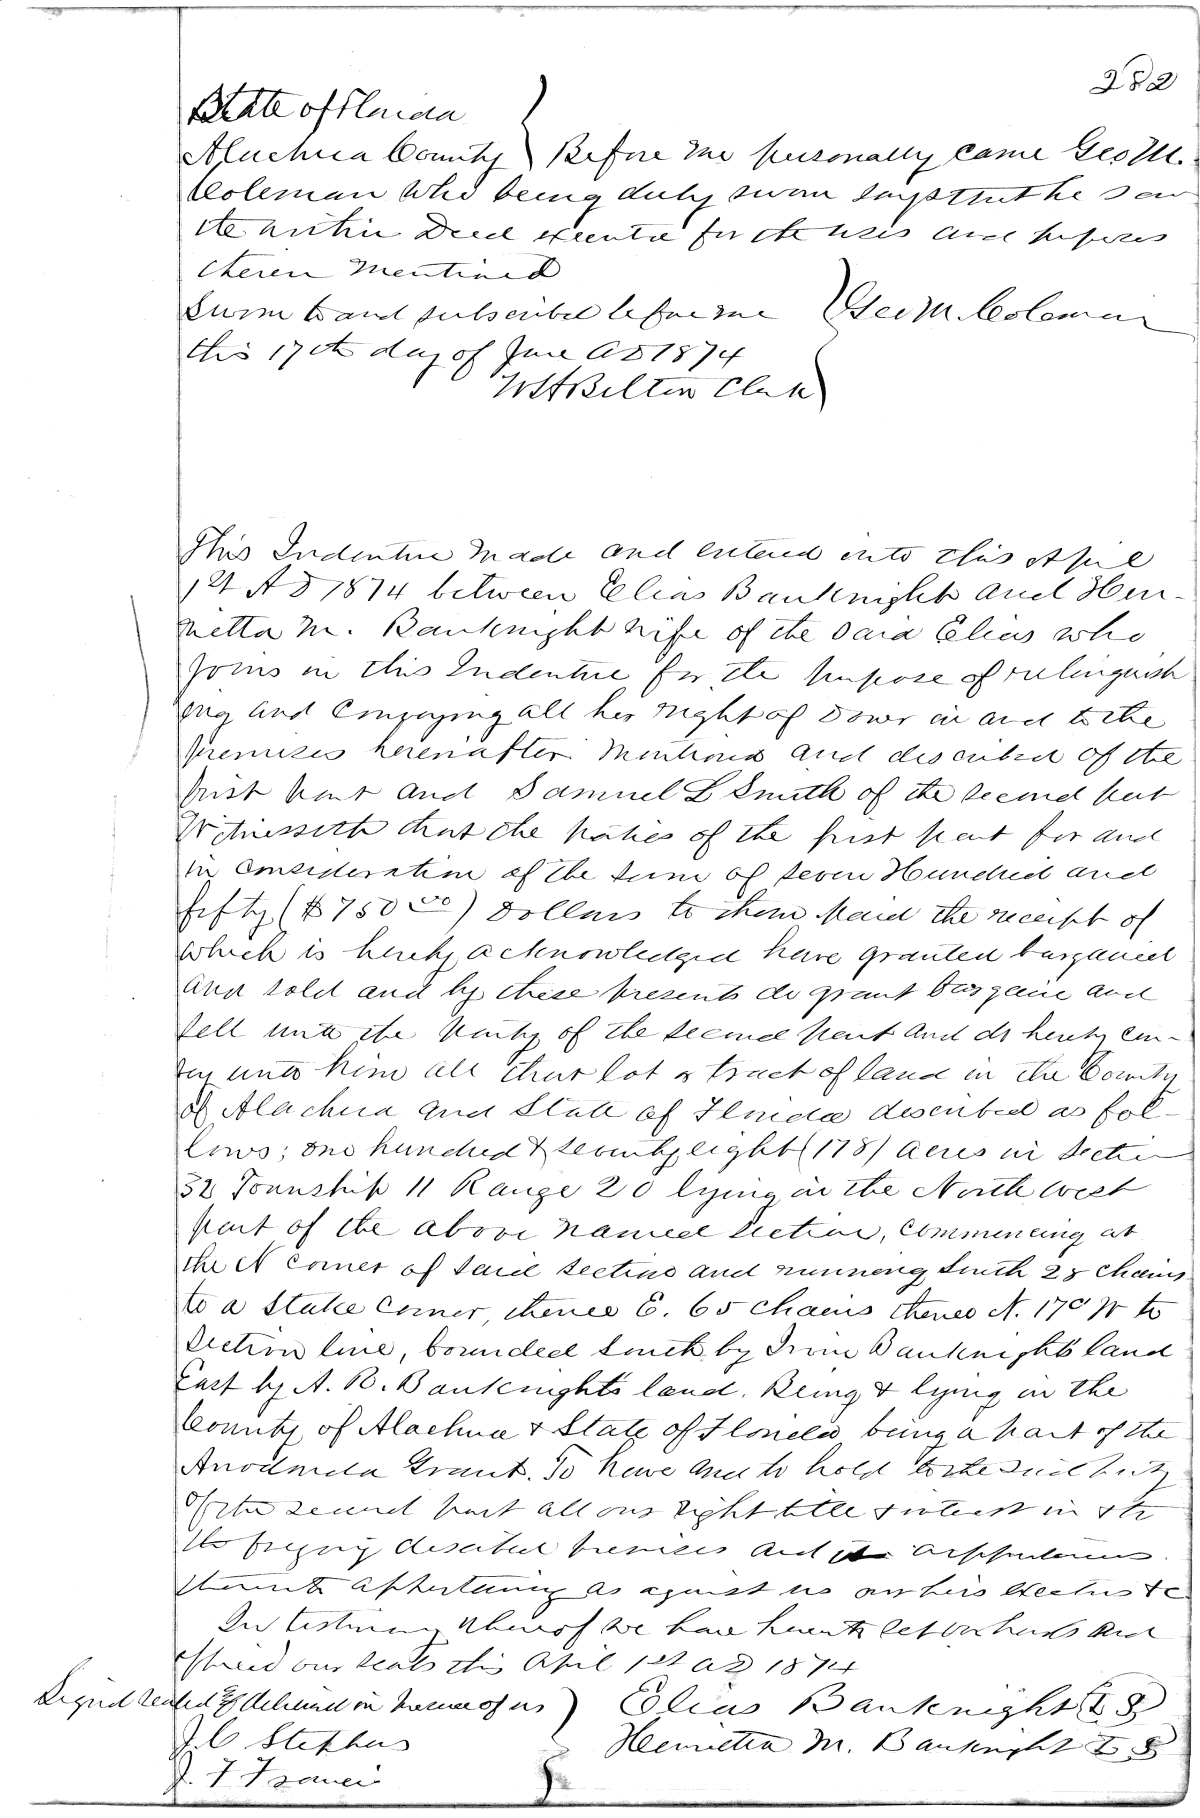 282
State of Florida
Alachua County } Before me personally came Geo M.
Coleman who being duly sworn says that he saw
the within Deed executed for the uses and purposes
therein mentioned
Sworn to and subscribed before me } Geo M. Coleman
this 17th day of June AD 1874
W H Belton Clerk
This Indenture made and entered into this April
1st AD 1874 between Elias Bauknight and Hen-
rietta M. Bauknight wife of the said Elias who
joins in this Indenture for the purpose of relinquish
ing and conveying all her right of Dower in and to the
premises hereinafter mentioned and described of the
first part and Samuel L Smith of the second part
Witnesseth that the parties of the first part for and
in consideration of the sum of seven Hundred and
fifty ($750 00) Dollars to them paid the receipt of
which is hereby acknowledged have granted bargained
and sold and by these presents do grant bargain and
sell unto the party of the second part and do hereby con-
vey unto him all that lot or tract of land in the County
of Alachua and State of Florida described as fol-
lows; one hundred & seventy eight (178) acres in Section
32 Township 11 Range 20 lying in the North West
part of the above named section, commencing at
the N corner of said section and running South 28 chains
to a stake corner, thence E. 65 chains thence N. 17° W to
section line, bounded South by Irvin Bauknight's land
East by A. B. Bauknight's land. Being & lying in the
County of Alachua & State of Florida being a part of the
Arredonda Grant. To have and to hold to the said party
of the second part all our right title & interest in & to
the foregoing described premises and the appurtenances
thereunto appertaining as against us our heirs executors &c
In testimony whereof we have hereunto set our hands and
affixed our seals this April 1st AD 1874
Signed sealed & delivered in presence of us } Elias Bauknight L S
J. C Stephens Henrietta M. Bauknight L S
J. F Francis